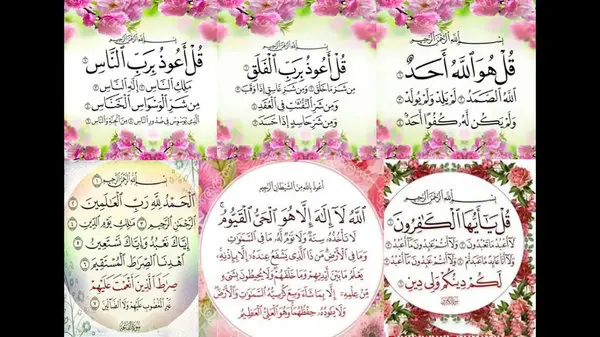 بِسْمِ ٱللَّهِ ٱلرَّحْمَٰنِ ٱلرَّحِيمِ
قُلْ هُوَ ٱللَّهُ أَحَدٌ ١
ٱللَّهُ ٱلصَّمَدُ ٢ لَمْ يَلِدْ وَلَمْ يُولَدْ ٣
وَلَمْ يَكُن لَّهُۥ كُفُوًا أَحَدٌۢ ٤
بِسْمِ ٱللَّهِ ٱلرَّحْمَٰنِ ٱلرَّحِيمِ
قُلْ أَعُوذُ بِرَبِّ ٱلْفَلَقِ ١
مِن شَرِّ مَا خَلَقَ ٢ وَمِن شَرِّ غَاسِقٍ إِذَا وَقَبَ ٣
وَمِن شَرِّ ٱلنَّفَّٰثَٰتِ فِى ٱلْعُقَدِ ٤
وَمِن شَرِّ حَاسِدٍ إِذَا حَسَدَ ٥
بِسْمِ ٱللَّهِ ٱلرَّحْمَٰنِ ٱلرَّحِيمِ
قُلْ أَعُوذُ بِرَبِّ ٱلنَّاسِ ١
مَلِكِ ٱلنَّاسِ ٢ إِلَٰهِ ٱلنَّاسِ ٣
مِن شَرِّ ٱلْوَسْوَاسِ ٱلْخَنَّاسِ ٤
ٱلَّذِى يُوَسْوِسُ فِى صُدُورِ ٱلنَّاسِ ٥ مِنَ ٱلْجِنَّةِ وَٱلنَّاسِ ٦
بِسْمِ ٱللَّهِ ٱلرَّحْمَٰنِ ٱلرَّحِيمِ
قُلْ يَٰٓأَيُّهَا ٱلْكَٰفِرُونَ ١
لَآ أَعْبُدُ مَا تَعْبُدُونَ ٢ وَلَآ أَنتُمْ عَٰبِدُونَ مَآ أَعْبُدُ ٣
وَلَآ أَنَا۠ عَابِدٌ مَّا عَبَدتُّمْ ٤ وَلَآ أَنتُمْ عَٰبِدُونَ مَآ أَعْبُدُ ٥
لَكُمْ دِينُكُمْ وَلِىَ دِينِ ٦
أعوذ بالله من الشيطان الرجيم
ٱللَّهُ لَآ إِلَٰهَ إِلَّا هُوَ ٱلْحَىُّ ٱلْقَيُّومُ
لَا تَأْخُذُهُۥ سِنَةٌ وَلَا نَوْمٌ لَّهُۥ مَا فِى ٱلسَّمَٰوَٰتِ
وَمَا فِى ٱلْأَرْضِ مَن ذَا ٱلَّذِى يَشْفَعُ عِندَهُۥٓ إِلَّا بِإِذْنِهِۦ
يَعْلَمُ مَا بَيْنَ أَيْدِيهِمْ وَمَا خَلْفَهُمْ وَلَا يُحِيطُونَ بِشَىْءٍ
مِّنْ عِلْمِهِۦٓ إِلَّا بِمَا شَآءَ وَسِعَ كُرْسِيُّهُ ٱلسَّمَٰوَٰتِ وَٱلْأَرْضَ
وَلَا يَـُٔودُهُۥ حِفْظُهُمَا وَهُوَ ٱلْعَلِىُّ ٱلْعَظِيمُ
بِسْمِ ٱللَّهِ ٱلرَّحْمَٰنِ ٱلرَّحِيمِ ١
ٱلْحَمْدُ لِلَّهِ رَبِّ ٱلْعَٰلَمِينَ ٢
ٱلرَّحْمَٰنِ ٱلرَّحِيمِ ٣ مَٰلِكِ يَوْمِ ٱلدِّينِ ٤
إِيَّاكَ نَعْبُدُ وَإِيَّاكَ نَسْتَعِينُ ٥
ٱهْدِنَا ٱلصِّرَٰطَ ٱلْمُسْتَقِيمَ ٦
صِرَٰطَ ٱلَّذِينَ أَنْعَمْتَ عَلَيْهِمْ
غَيْرِ ٱلْمَغْضُوبِ عَلَيْهِمْ وَلَا ٱلضَّآلِّينَ ٧